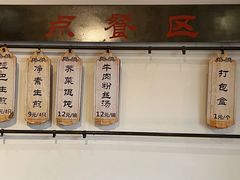 点餐区
净素生煎
9元/4只
荠菜馄饨
12元/碗
牛肉粉丝汤
12元/碗
打包盒
1元/个